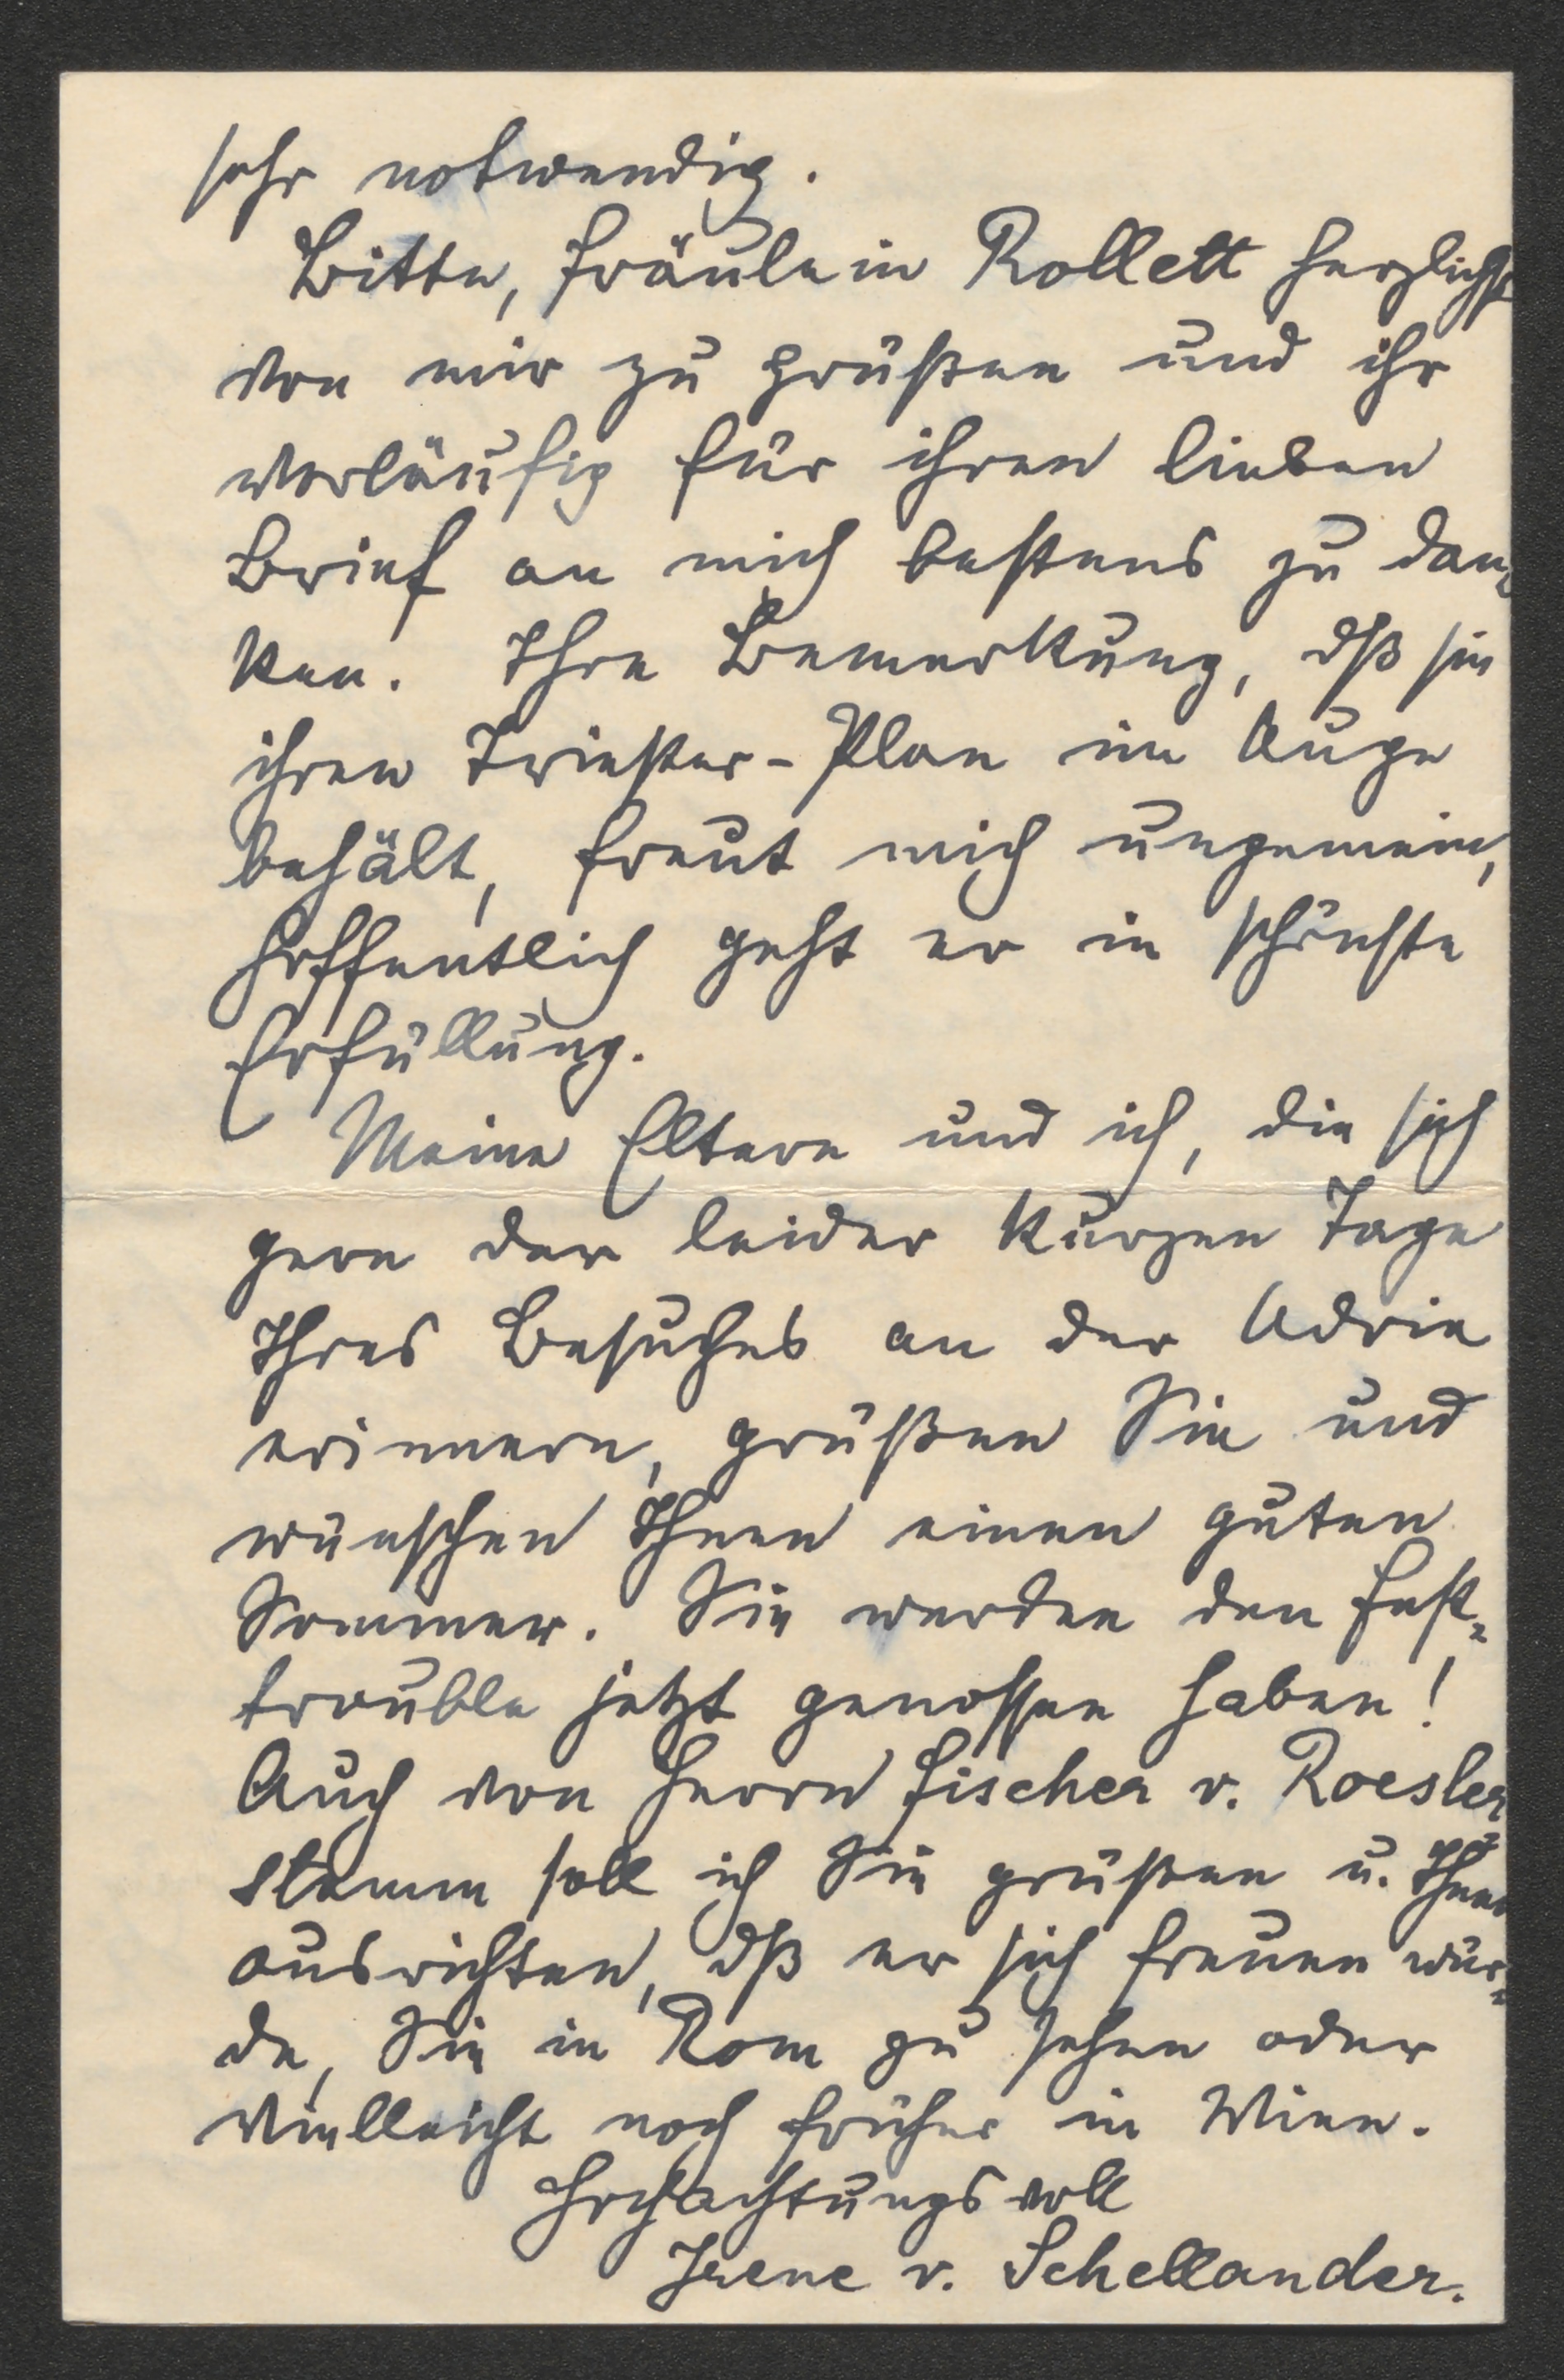 sehr notwendig.
Bitte, Fräulein Rollett herzlichst
von mir zu grüßen und ihr
vorläufig für ihren lieben
Brief an mich bestens zu dan-
ken. Ihre Bemerkung, dß sie
ihren Triester-Plan im Auge
behält, freut mich ungemein,
hoffentlich geht er in schönste
Erfüllung.
Meine Eltern und ich, die sich
gern der leider kurzen Tage
Ihres Besuches an der Adria
erinnern, grüßen Sie und
wünschen Ihnen einen guten
Sommer. Sie werden den Fest-
trouble jetzt genossen haben!
Auch von Herrn Fischer v. Roesler-
stamm soll ich Sie grüßen u. Ihnen
ausrichten, dß er sich freuen wür-
de, Sie in Rom zu sehen oder
vielleicht noch früher in Wien.
Hochachtungsvoll
Irene v. Schellander.